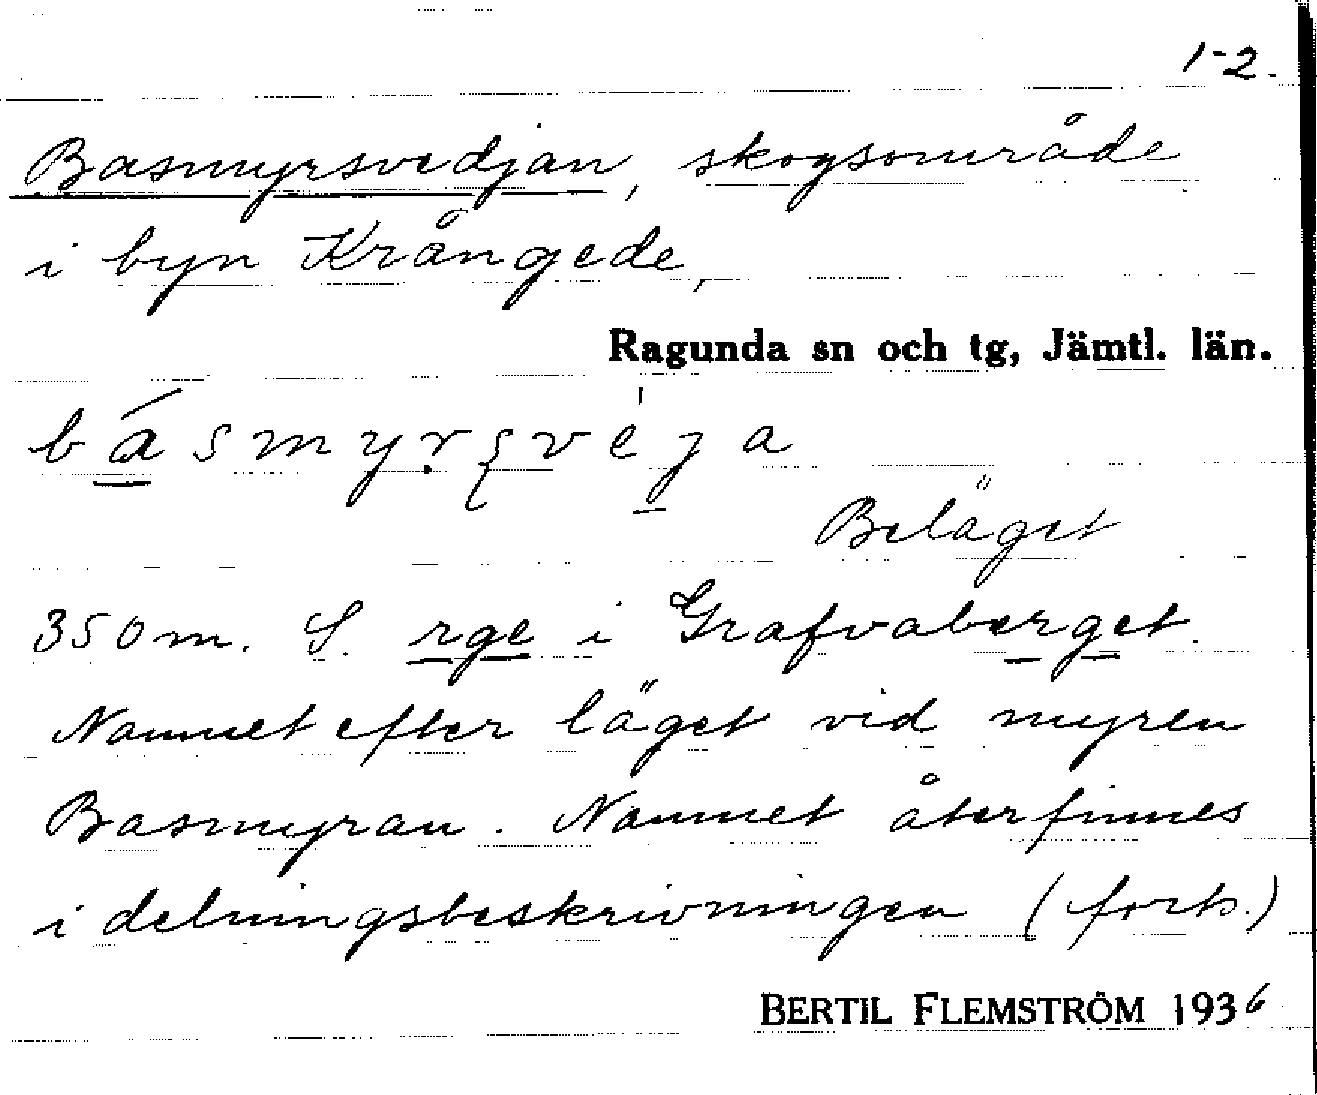 1-2.
Basmyrsvedjan, skogsområde
i byn Krångede,
Ragunda sn och tg, Jämtl. län.
Beläget
350 m. S. rge i Grafvaberget.
Namnet efter läget vid myren
Basmyran. Namnet återfinnes
i delningsbeskrivningen (forts.)
BERTIL FLEMSTRÖM 1936